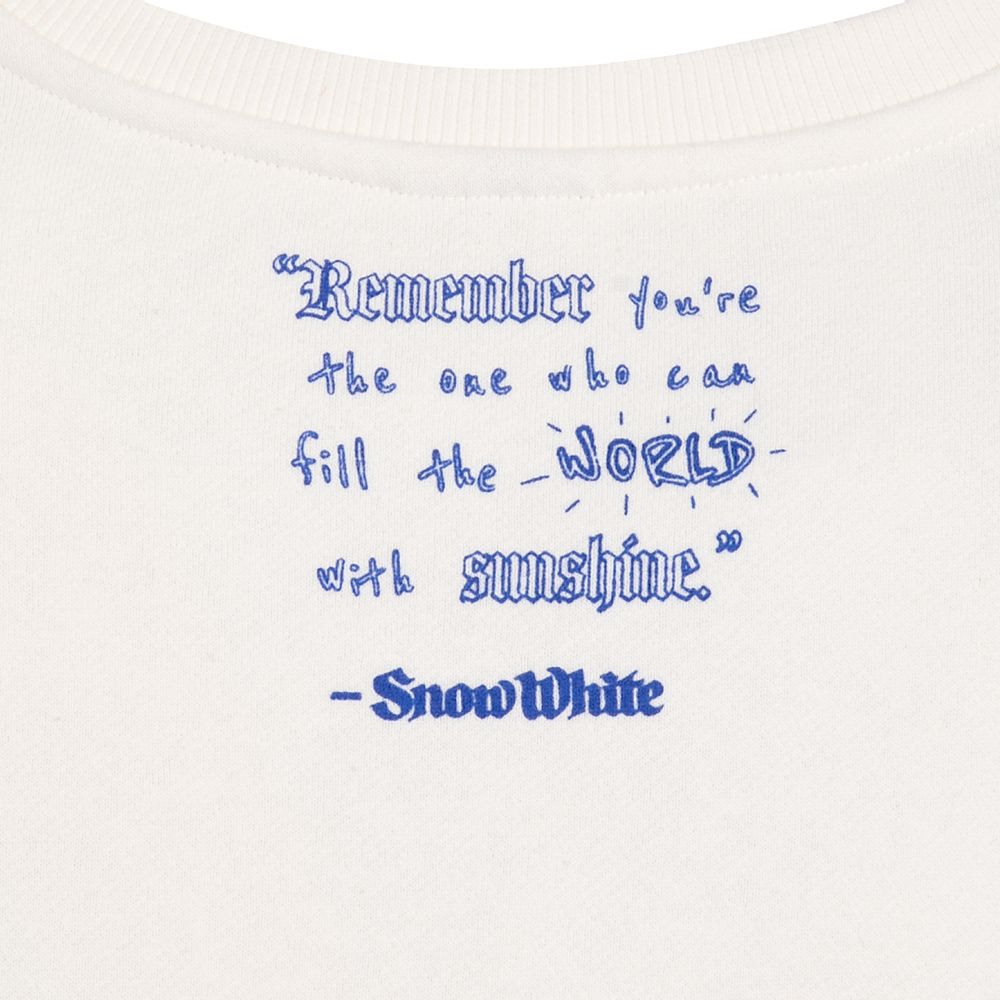 “Remember you're
the one who can
fill the WORLD
with sunshine.”
– Snow White